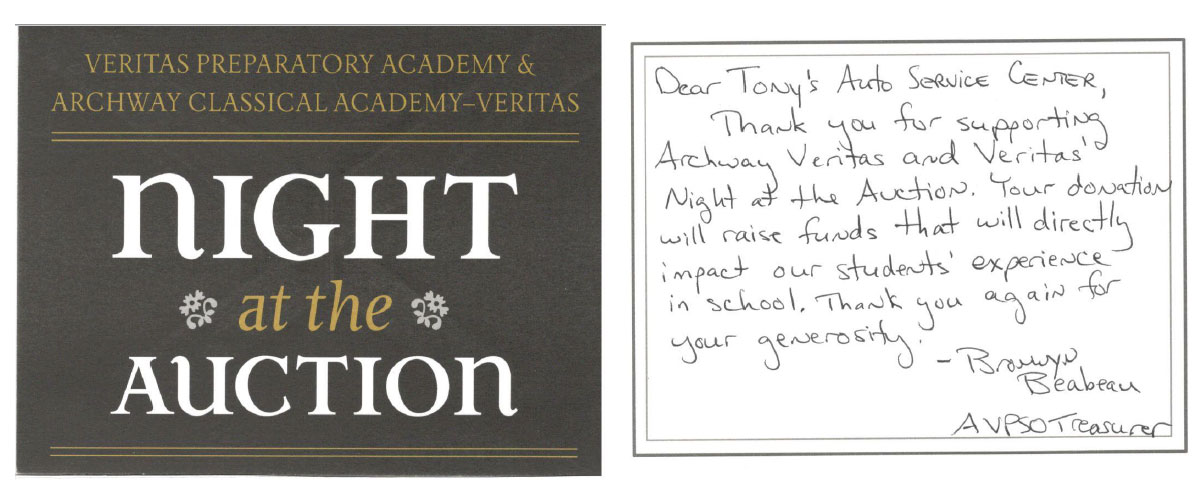 VERITAS PREPARATORY ACADEMY &
ARCHWAY CLASSICAL ACADEMY–VERITAS
NIGHT
at the
AUCTION
Dear Tony's Auto Service Center,
Thank you for supporting
Archway Veritas and Veritas'
Night at the Auction. Your donation
will raise funds that will directly
impact our students' experience
in school. Thank you again for
your generosity.
- Bronwyn
Beabeau
AVPSO Treasurer